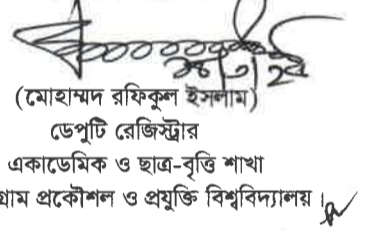 (মোহাম্মদ রফিকুল ইসলাম)
ডেপুটি রেজিস্ট্রার
একাডেমিক ও ছাত্র-বৃত্তি শাখা
গ্রাম প্রকৌশল ও প্রযুক্তি বিশ্ববিদ্যালয়।